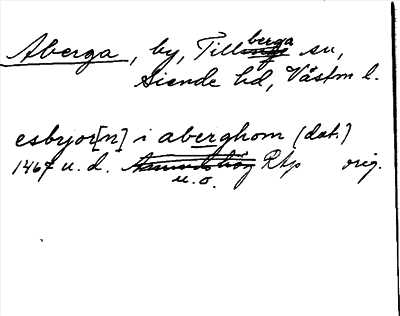 Aberga, by, Tillberga sn,
Siende hd, Västm l.
esbjor[n] i aberghom (dat.)
1467 u. d. Rtp orig.
u. o.